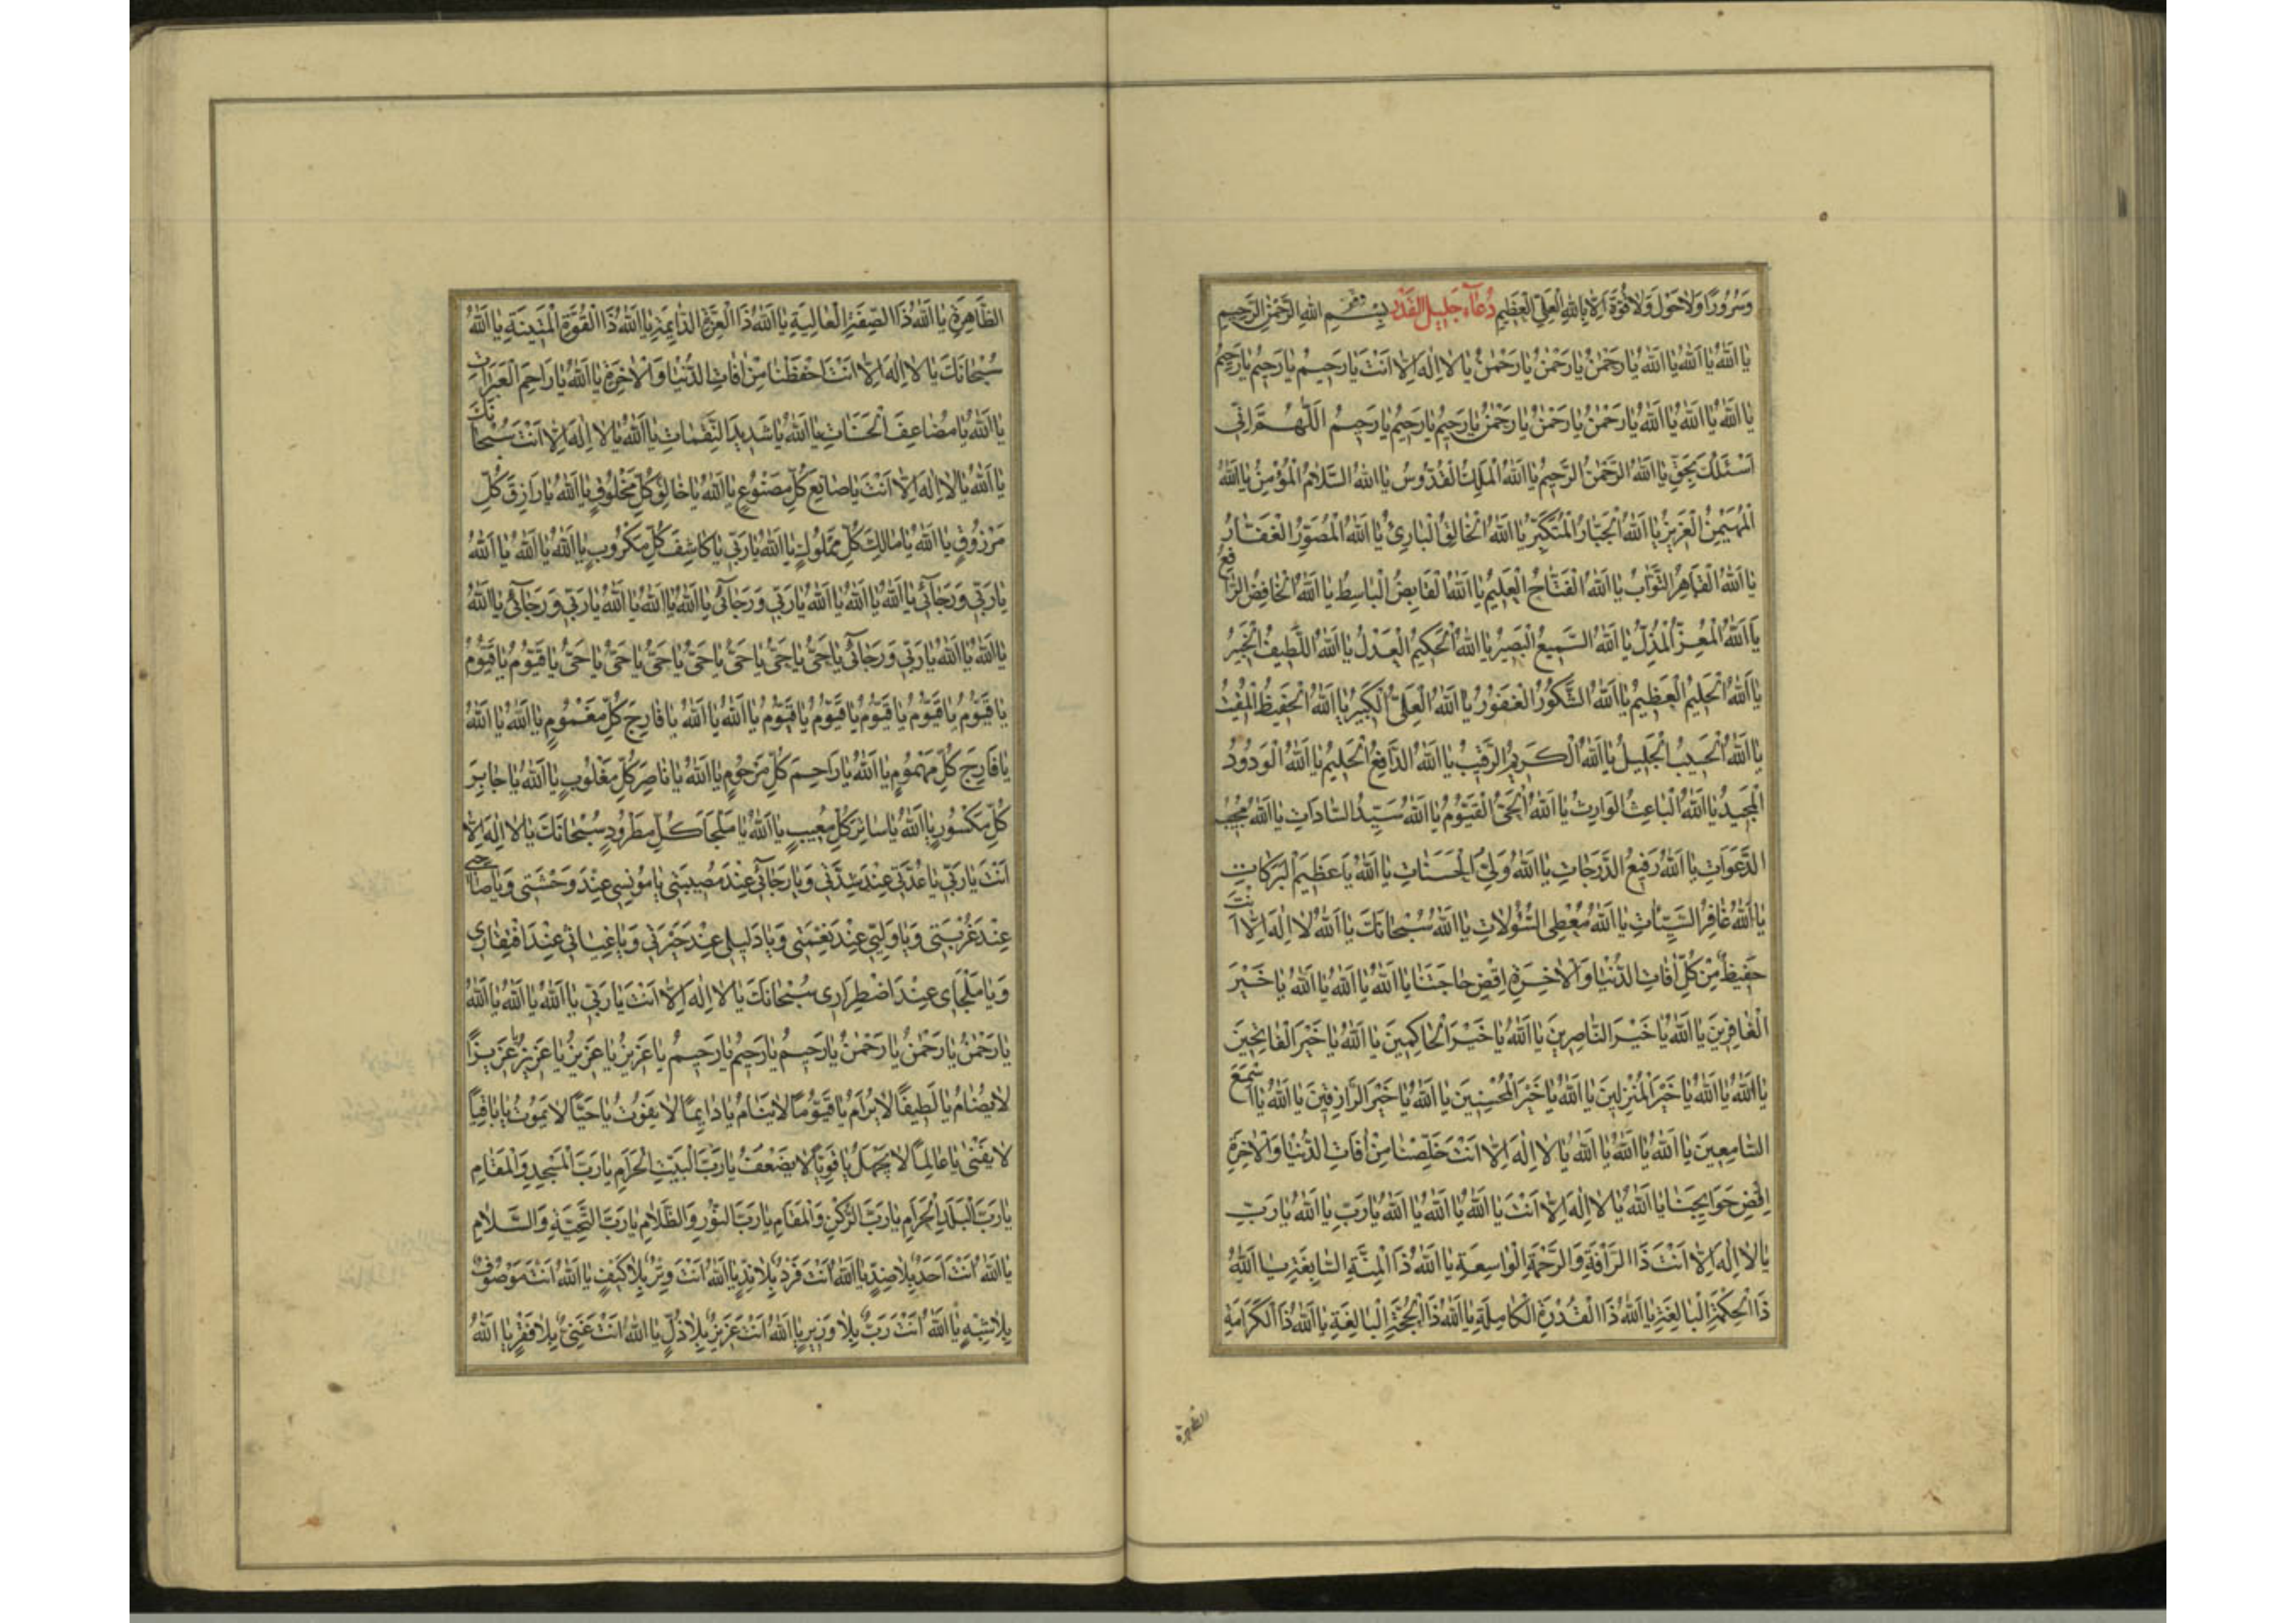 وَسُرُورًا وَلَاحَوْلَ وَلَاقُوَّةَ اِلَّا بِاللّٰهِ الْعَلِىِّ الْعَظِيمِ دُعَآءِ جَلِيلِ الْقَدْرِ بِسْمِ اللهِ الرَّحْمٰنِ الرَّحِيمِ
يٰا اَللّٰهُ يٰا اَللّٰهُ يٰا اَللّٰهُ يٰا رَحْمٰنُ يٰا رَحْمٰنُ يٰا رَحْمٰنُ يٰا لٰا اِلٰهَ اِلّٰا اَنْتَ يٰا رَحِيمُ يٰا رَحِيمُ يٰا رَحِيمُ
يٰا اَللّٰهُ يٰا اَللّٰهُ يٰا اَللّٰهُ يٰا رَحْمٰنُ يٰا رَحْمٰنُ يٰا رَحْمٰنُ يٰا رَحِيمُ يٰا رَحِيمُ يٰا رَحِيمُ اَللّٰهُمَّ اِنِّى
اَسْئَلُكَ بِحَقِّ يٰا اَللّٰهُ الرَّحْمٰنُ الرَّحِيمُ يٰا اَللّٰهُ الْمَلِكُ الْقُدُّوسُ يٰا اَللّٰهُ السَّلٰامُ الْمُؤْمِنُ يٰا اَللّٰهُ
الْمُهَيْمِنُ الْعَزِيزُ يٰا اَللّٰهُ الْجَبّٰارُ الْمُتَكَبِّرُ يٰا اَللّٰهُ الْخٰالِقُ الْبٰارِئُ يٰا اَللّٰهُ الْمُصَوِّرُ الْغَفّٰارُ
يٰا اَللّٰهُ الْقٰاهِرُ التَّوّٰابُ يٰا اَللّٰهُ الْفَتّٰاحُ الْعَلِيمُ يٰا اَللّٰهُ الْقٰابِضُ الْبٰاسِطُ يٰا اَللّٰهُ الْخٰافِضُ الرّٰافِعُ
يٰا اَللّٰهُ الْمُعِزُّ الْمُذِلُّ يٰا اَللّٰهُ السَّمِيعُ الْبَصِيرُ يٰا اَللّٰهُ الْحَكِيمُ الْعَدْلُ يٰا اَللّٰهُ اللَّطِيفُ الْخَبِيرُ
يٰا اَللّٰهُ الْحَلِيمُ الْعَظِيمُ يٰا اَللّٰهُ الشَّكُورُ الْغَفُورُ يٰا اَللّٰهُ الْعَلِىُّ الْكَبِيرُ يٰا اَللّٰهُ الْحَفِيظُ الْمُقِيتُ
يٰا اَللّٰهُ الْحَسِيبُ الْجَلِيلُ يٰا اَللّٰهُ الْكَرِيمُ الرَّقِيبُ يٰا اَللّٰهُ الدّٰافِعُ الْحَلِيمُ يٰا اَللّٰهُ الْوَدُودُ
الْمَجِيدُ يٰا اَللّٰهُ الْبٰاعِثُ الْوٰارِثُ يٰا اَللّٰهُ الْحَىُّ الْقَيُّومُ يٰا اَللّٰهُ سَيِّدُ السّٰادٰاتِ يٰا اَللّٰهُ مُجِيبُ
الدَّعَوٰاتِ يٰا اَللّٰهُ رَفِيعُ الدَّرَجٰاتِ يٰا اَللّٰهُ وَلِىُّ الْحَسَنٰاتِ يٰا اَللّٰهُ يٰا عَظِيمَ الْبَرَكٰاتِ
يٰا اَللّٰهُ غٰافِرُ السَّيِّئٰاتِ يٰا اَللّٰهُ مُعْطِى السُّؤُلٰاتِ يٰا اَللّٰهُ سُبْحٰانَكَ يٰا اَللّٰهُ لٰا اِلٰهَ اِلّٰا اَنْتَ
حَفِيظٌ مِنْ كُلِّ اٰفٰاتِ الدُّنْيٰا وَالْاٰخِرَةِ اِقْضِ حٰاجَتَنٰا يٰا اَللّٰهُ يٰا اَللّٰهُ يٰا اَللّٰهُ يٰا خَيْرَ
الْغٰافِرِينَ يٰا اَللّٰهُ يٰا خَيْرَ النّٰاصِرِينَ يٰا اَللّٰهُ يٰا خَيْرَ الْحٰاكِمِينَ يٰا اَللّٰهُ يٰا خَيْرَ الْفٰاتِحِينَ
يٰا اَللّٰهُ يٰا اَللّٰهُ يٰا خَيْرَ الْمُنْزِلِينَ يٰا اَللّٰهُ يٰا خَيْرَ الْمُحْسِنِينَ يٰا اَللّٰهُ يٰا خَيْرَ الرّٰازِقِينَ يٰا اَللّٰهُ يٰا اَسْمَعَ
السّٰامِعِينَ يٰا اَللّٰهُ يٰا اَللّٰهُ يٰا اَللّٰهُ يٰا لٰا اِلٰهَ اِلّٰا اَنْتَ خَلِّصْنٰا مِنْ اٰفٰاتِ الدُّنْيٰا وَالْاٰخِرَةِ
اِقْضِ حَوٰايِجَنٰا يٰا اَللّٰهُ يٰا لٰا اِلٰهَ اِلّٰا اَنْتَ يٰا اَللّٰهُ يٰا اَللّٰهُ يٰا اَللّٰهُ يٰا رَبِّ يٰا اَللّٰهُ يٰا رَبِّ
يٰا لٰا اِلٰهَ اِلّٰا اَنْتَ ذَا الرَّأْفَةِ وَالرَّحْمَةِ الْوٰاسِعَةِ يٰا اَللّٰهُ ذَا الْمِنَّةِ السّٰابِغَةِ يٰا اَللّٰهُ
ذَا الْحِكْمَةِ الْبٰالِغَةِ يٰا اَللّٰهُ ذَا الْقُدْرَةِ الْكٰامِلَةِ يٰا اَللّٰهُ ذَا الْحُجَّةِ الْبٰالِغَةِ يٰا اَللّٰهُ ذَا الْكَرٰامَةِ
الظاهرة
الظّٰاهِرَةِ يٰا اَللّٰهُ ذَا الصِّفَةِ الْعٰالِيَةِ يٰا اَللّٰهُ ذَا الْعِزَّةِ الدّٰايِمَةِ يٰا اَللّٰهُ ذَا الْقُوَّةِ الْمَتِينَةِ يٰا اَللّٰهُ
سُبْحٰانَكَ يٰا لٰا اِلٰهَ اِلّٰا اَنْتَ احْفَظْنٰا مِنْ اٰفٰاتِ الدُّنْيٰا وَالْاٰخِرَةِ يٰا اَللّٰهُ يٰا رٰاحِمَ الْعَبَرٰاتِ
يٰا اَللّٰهُ يٰا مُضٰاعِفَ الْحَسَنٰاتِ يٰا اَللّٰهُ يٰا شَدِيدَ النَّقِمٰاتِ يٰا اَللّٰهُ يٰا لٰا اِلٰهَ اِلّٰا اَنْتَ سُبْحٰانَكَ
يٰا اَللّٰهُ يٰا لٰا اِلٰهَ اِلّٰا اَنْتَ يٰا صٰانِعَ كُلِّ مَصْنُوعٍ يٰا اَللّٰهُ يٰا خٰالِقَ كُلِّ مَخْلُوقٍ يٰا اَللّٰهُ يٰا رٰازِقَ كُلِّ
مَرْزُوقٍ يٰا اَللّٰهُ يٰا مٰالِكَ كُلِّ مَمْلُوكٍ يٰا اَللّٰهُ يٰا رَبِّى يٰا كٰاشِفَ كُلِّ مَكْرُوبٍ يٰا اَللّٰهُ يٰا اَللّٰهُ يٰا اَللّٰهُ
يٰا رَبِّى وَرَجٰآئِى يٰا اَللّٰهُ يٰا اَللّٰهُ يٰا اَللّٰهُ يٰا رَبِّى وَرَجٰآئِى يٰا اَللّٰهُ يٰا اَللّٰهُ يٰا اَللّٰهُ يٰا رَبِّى وَرَجٰآئِى يٰا اَللّٰهُ
يٰا اَللّٰهُ يٰا اَللّٰهُ يٰا رَبِّى وَرَجٰآئِى يٰا حَىُّ يٰا حَىُّ يٰا حَىُّ يٰا حَىُّ يٰا حَىُّ يٰا حَىُّ يٰا حَىُّ يٰا قَيُّومُ يٰا قَيُّومُ
يٰا قَيُّومُ يٰا قَيُّومُ يٰا قَيُّومُ يٰا قَيُّومُ يٰا قَيُّومُ يٰا اَللّٰهُ يٰا اَللّٰهُ يٰا فٰارِجَ كُلِّ مَغْمُومٍ يٰا اَللّٰهُ يٰا اَللّٰهُ
يٰا فٰارِجَ كُلِّ مَهْمُومٍ يٰا اَللّٰهُ يٰا رٰاحِمَ كُلِّ مَرْحُومٍ يٰا اَللّٰهُ يٰا نٰاصِرَ كُلِّ مَغْلُوبٍ يٰا اَللّٰهُ يٰا جٰابِرَ
كُلِّ مَكْسُورٍ يٰا اَللّٰهُ يٰا سٰاتِرَ كُلِّ مَعِيبٍ يٰا اَللّٰهُ يٰا مَلْجَاَ كُلِّ مَطْرُودٍ سُبْحٰانَكَ يٰا لٰا اِلٰهَ اِلّٰا
اَنْتَ يٰا رَبِّى يٰا عُدَّتِى عِنْدَ شِدَّتِى وَيٰا رَجٰآئِى عِنْدَ مُصِيبَتِى يٰا مُونِسِى عِنْدَ وَحْشَتِى وَيٰا صٰاحِبِى
عِنْدَ غُرْبَتِى وَيٰا وَلِيِّى عِنْدَ نِعْمَتِى وَيٰا دَلِيلِى عِنْدَ حَيْرَتِى وَيٰا غِيٰاثِى عِنْدَ افْتِقٰارِى
وَيٰا مَلْجَاىِ عِنْدَ اضْطِرٰارِى سُبْحٰانَكَ يٰا لٰا اِلٰهَ اِلّٰا اَنْتَ يٰا رَبِّى يٰا اَللّٰهُ يٰا اَللّٰهُ يٰا اَللّٰهُ
يٰا رَحْمٰنُ يٰا رَحْمٰنُ يٰا رَحْمٰنُ يٰا رَحِيمُ يٰا رَحِيمُ يٰا رَحِيمُ يٰا عَزِيزُ يٰا عَزِيزُ يٰا عَزِيزُ يٰا عَزِيزًا
لٰا يُضٰامُ يٰا لَطِيفًا لٰا يُرٰامُ يٰا قَيُّومًا لٰا يَنٰامُ يٰا دٰايِمًا لٰا يَفُوتُ يٰا حَيًّا لٰا يَمُوتُ يٰا بٰاقِيًا
لٰا يَفْنٰى يٰا عٰالِمًا لٰا يَجْهَلُ يٰا قَوِيًّا لٰا يَضْعُفُ يٰا رَبَّ الْبَيْتِ الْحَرٰامِ يٰا رَبَّ الْمَسْجِدِ وَالْمَقٰامِ
يٰا رَبَّ الْبَلَدِ الْحَرٰامِ يٰا رَبَّ الرُّكْنِ وَالْمَقٰامِ يٰا رَبَّ النُّورِ وَالظَّلٰامِ يٰا رَبَّ التَّحِيَّةِ وَالسَّلٰامِ
يٰا اَللّٰهُ اَنْتَ اَحَدٌ بِلٰا ضِدٍّ يٰا اَللّٰهُ اَنْتَ فَرْدٌ بِلٰا نِدٍّ يٰا اَللّٰهُ اَنْتَ وِتْرٌ بِلٰا كَيْفٍ يٰا اَللّٰهُ اَنْتَ مَوْصُوفٌ
بِلٰا شِبْهٍ يٰا اَللّٰهُ اَنْتَ رَبٌّ بِلٰا وَزِيرٍ يٰا اَللّٰهُ اَنْتَ عَزِيزٌ بِلٰا ذُلٍّ يٰا اَللّٰهُ اَنْتَ غَنِىٌّ بِلٰا فَقْرٍ يٰا اَللّٰهُ